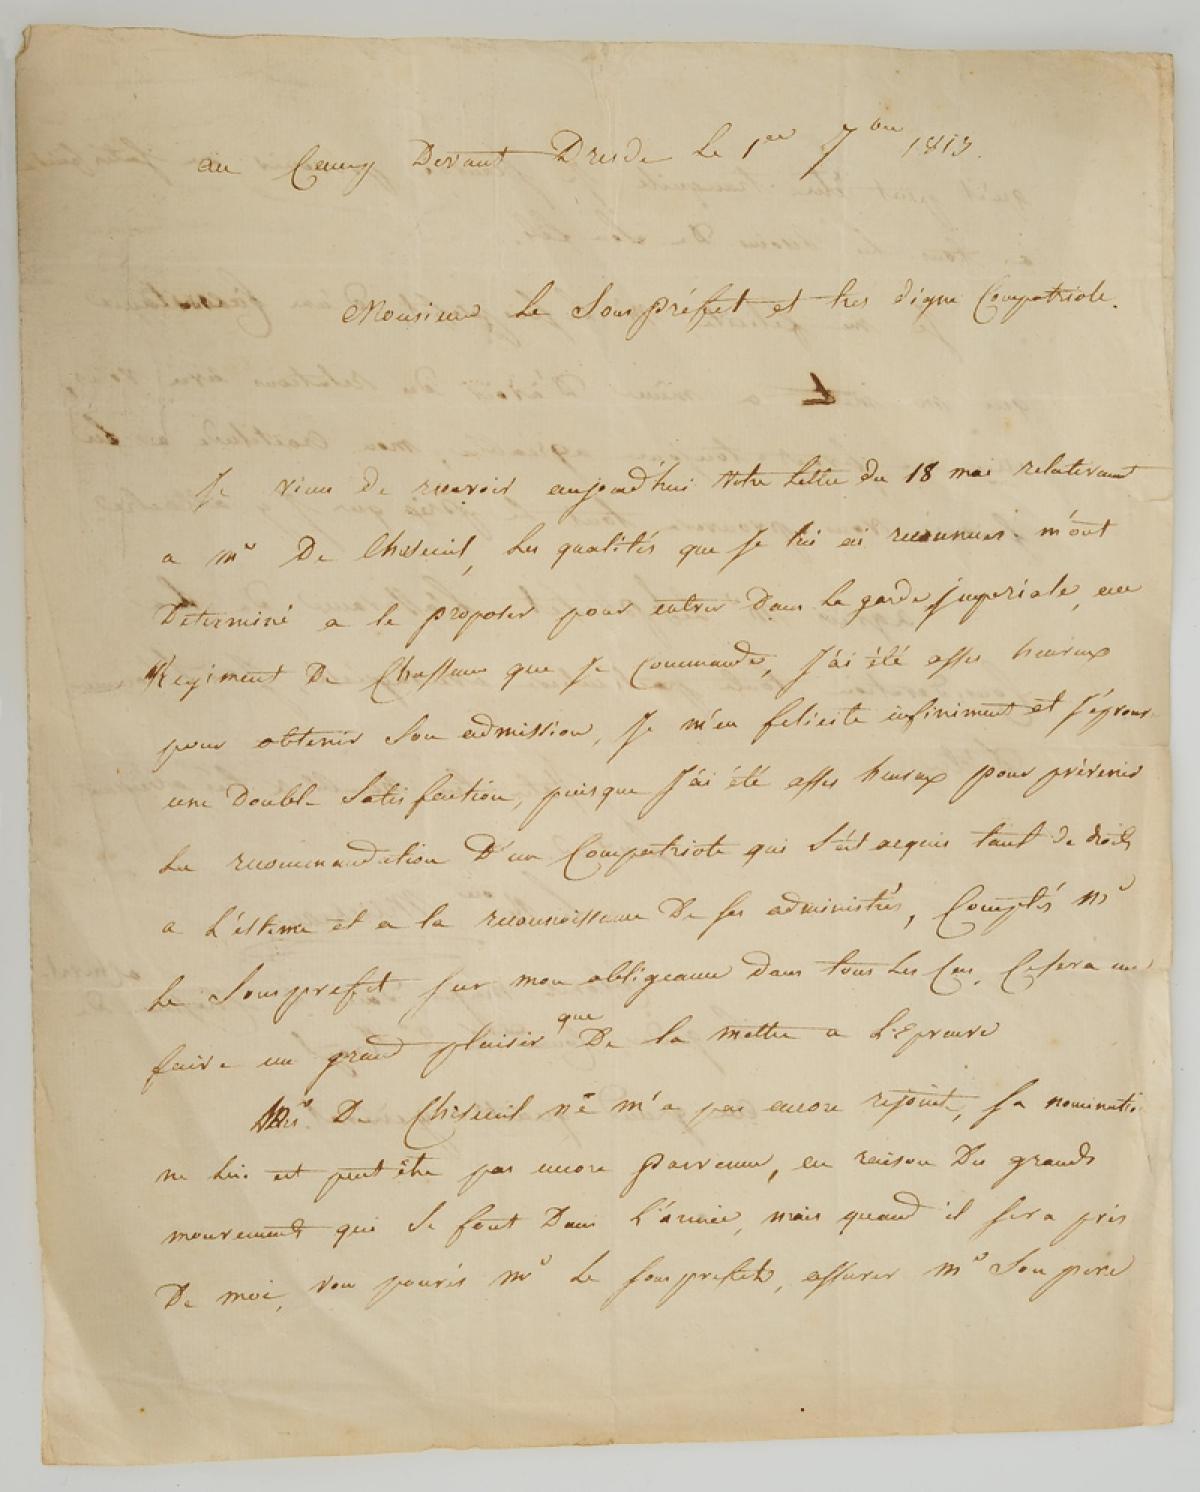 au Camp Devant Dresde Le 1er 7bre 1813.
Monsieur Le Sous préfet et tres digne Compatriote.
Je viens de recevoir aujourd'hui Votre Lettre du 18 mai relativement
a mr De Chereuil, Les qualités que Je lui ai reconnues m'ont
Determiné a le proposer pour entrer Dans La garde Jmperiale, au
Regiment De Chasseurs que Je Commande, J'ai été asses heureux
pour obtenir Son admission, Je m'en felicite infiniment et J'éprouve
une Double Satisfaction, puisque J'ai été asses heureux pour prévenir
La recommandation D'un Compatriote qui S'est acquis tant de droits
a L'estime et a la reconnoissance De Ses administrés, Comptés mr
Le Sous prefet sur mon obligeance dans tous Les Cas, Ce sera me
faire un grand plaisir que De la mettre a L'Epreuve
Mr De Chereuil ne m'a pas encore rejoint, Sa nomination
ne Lui est peut être pas encore parvenue, en raison Des grands
mouvements qui Se font Dans L'armée, mais quand il sera près
De moi, vous pourés mr Le Sous prefet, assurer mr Son pere